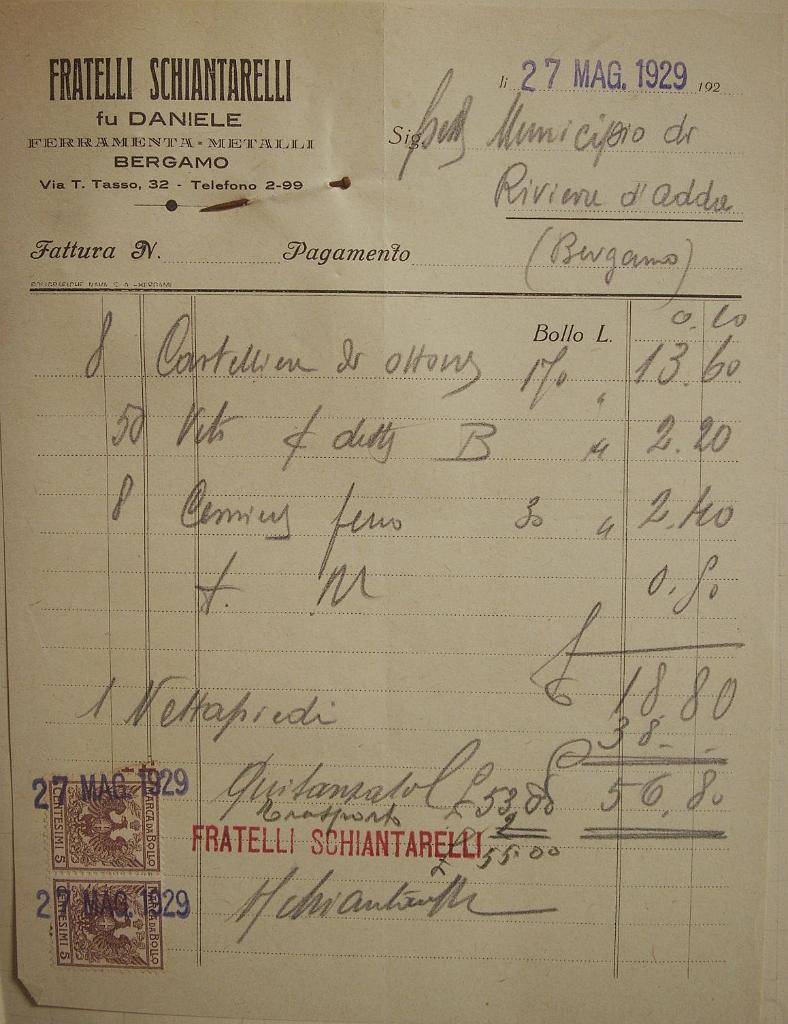 FRATELLI SCHIANTARELLI
fu DANIELE
FERRAMENTA - METALLI
BERGAMO
Via T. Tasso, 32 - Telefono 2-99
li 27 MAG. 1929 192
Sig. Municipio di
Riviera d'Adda
(Bergamo)
Fattura N. Pagamento
POLIGRAFICHE NAVA S. A. - BERGAMO
Bollo L. 0.10
8 di ottone 170 " 13.60
50 Viti B " 2.20
8 ferro 30 " 2.40
0.80
£ 18.80
1 Nettapiedi 38.-
Quitanzato £ 53.80 56.80
Trasporto 2
FRATELLI SCHIANTARELLI
£ 55.00
Schiantarelli
27 MAG. 1929
MARCA DA BOLLO
CENTESIMI 5
27 MAG. 1929
MARCA DA BOLLO
CENTESIMI 5